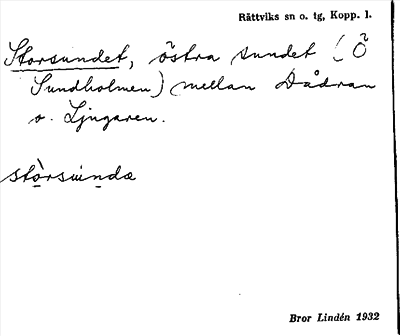 Rättviks sn o. tg, Kopp. l.
Storsundet, östra sundet (Ö
Sundholmen) mellan Dådran
o. Ljugaren.
stòrsundæ
Bror Lindén 1932